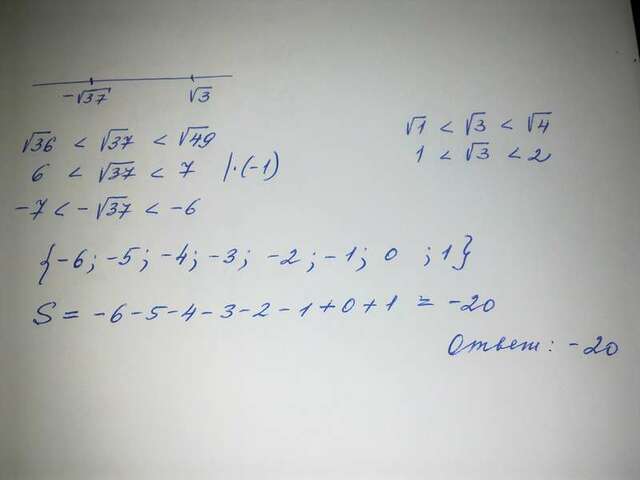 -√37 √3
√36 < √37 < √49
6 < √37 < 7 |·(-1)
-7 < -√37 < -6
√1 < √3 < √4
1 < √3 < 2
{-6; -5; -4; -3; -2; -1; 0 ; 1}
S = -6-5-4-3-2-1+0+1 = -20
Ответ: -20